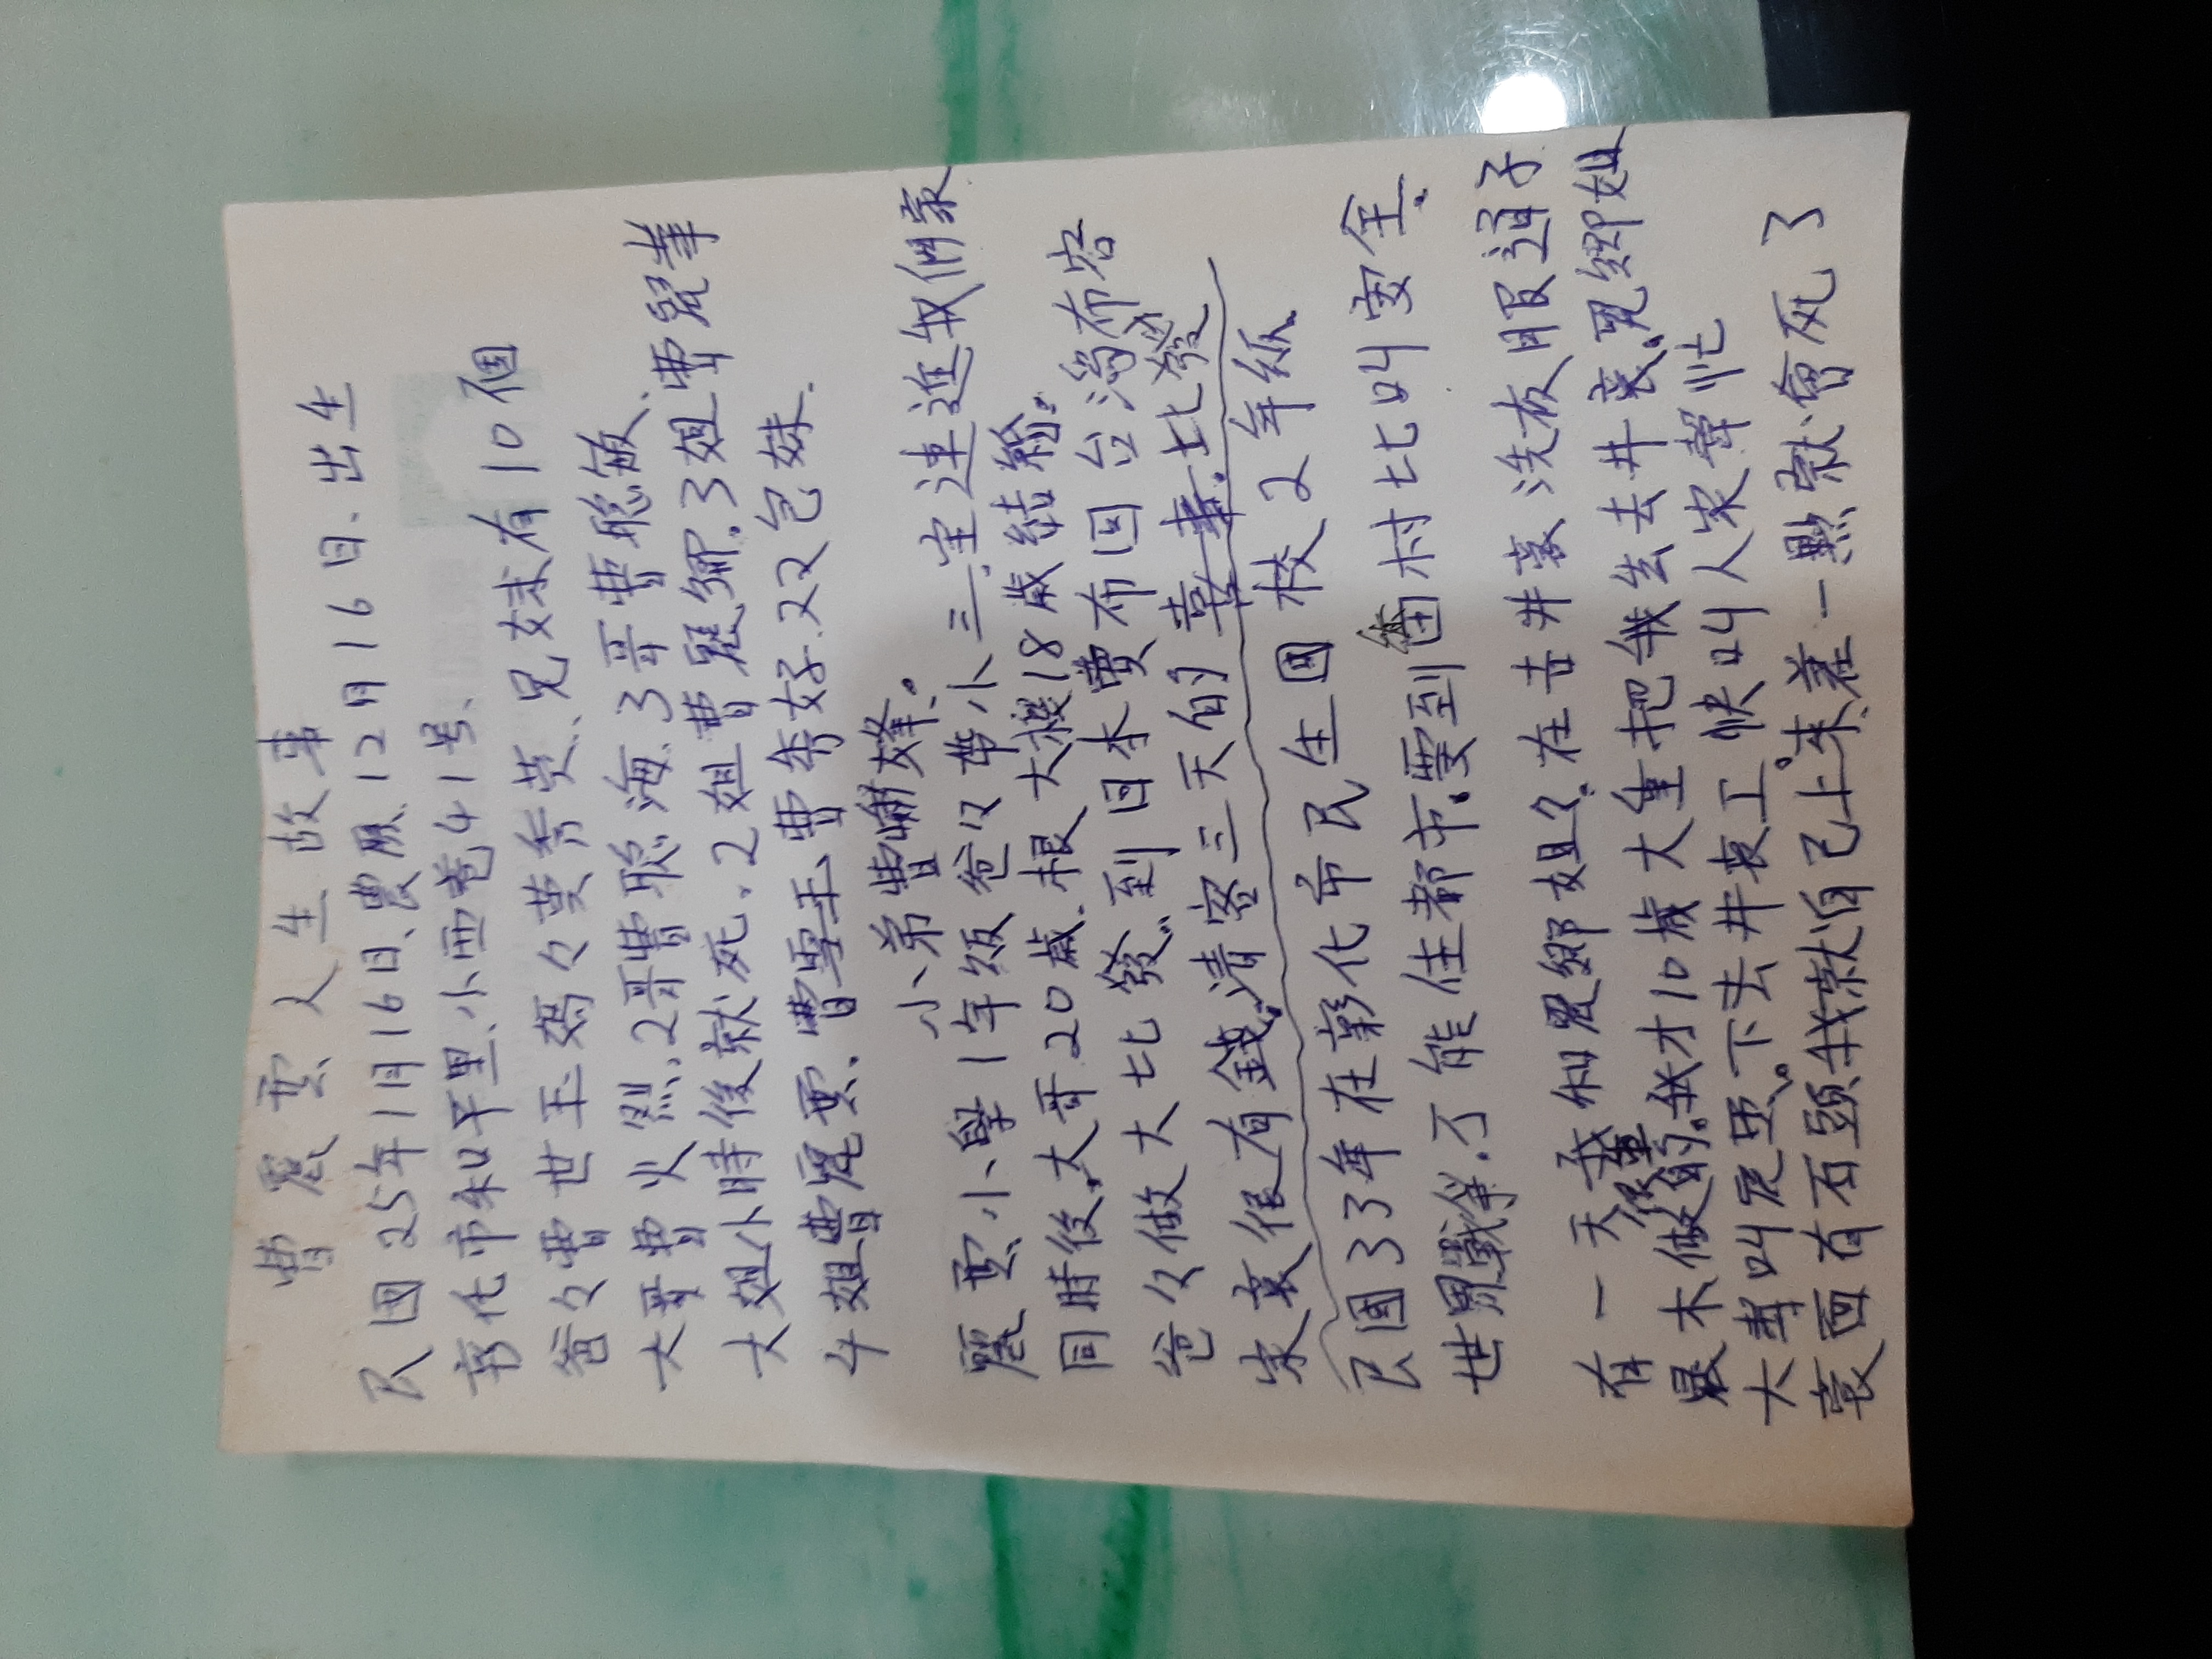 曹麗雲人生故事
民國25年1月16日、農厤、12月16日、出生
彰化市和平里、小西巷41号、
爸々曹世玉媽々黃秀英、兄妹有10個
大哥曹火烈、2哥曹聰海、3哥曹聰敏、
大姐小時後就死、2姐曹麗鄉、3姐曹麗華
4姐曹麗雲、曹雪玉、曹秀好、双双包妹、
小弟曹 峰。
麗雲小學1年級爸々帶小三、宝連進我們家
同時後、大哥20歲、根大 18歲結婚。
爸々做大比發、到日本賣布回台灣布客
家裏很有錢、請客三天的喜事、比發
民國33年在彰化市民生国校2年級、
世界戰爭、不能住都市、要到番村比叫安全、
有一天我和麗鄉姐々、在古井裏洗衣服道子
很重
是木做的、我才10歲大重把我去去井裏、麗鄉姐
大聲叫麗雲、下去井裏工、快叫人家幫忙
裏面有石頭、我就自己上來、差一點就會死了